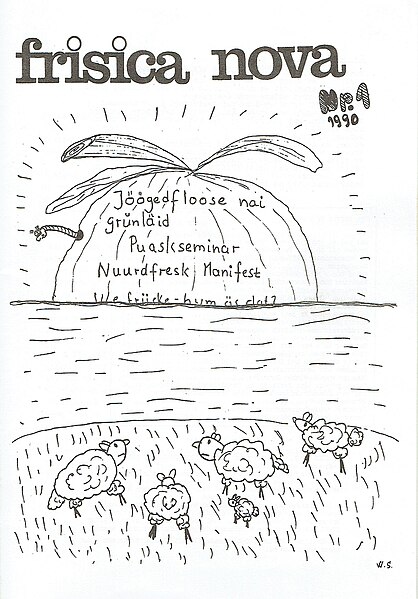 frisica nova
Nr.1
1990
Jöögedfloose nai
grünläid
Puaskseminar
Nuurdfresk Manifest
W.S.